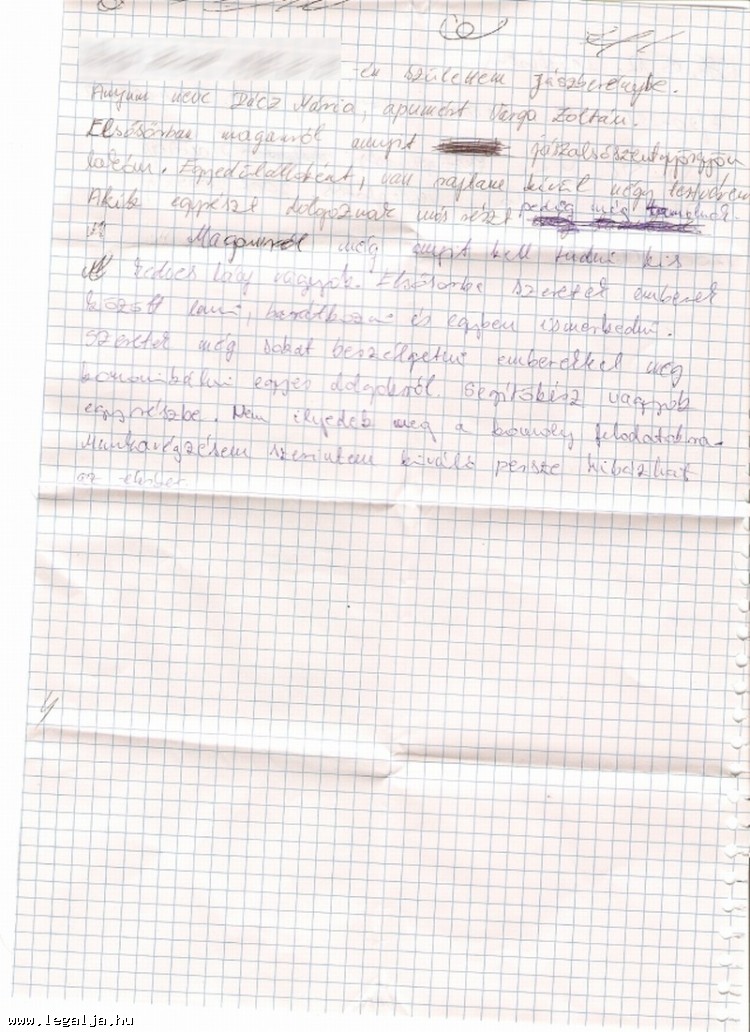 -én születtem Jászberénybe.
Anyám neve Dócz Mária, apumért Varga Zoltán.
Elsősórban maganról annyit jászalsószentgyörgyön
lakom. Egyedülallóként, van rajtam kívül négy testvérem
Akik egyrészt dolgoznak más részt pedig még tanulnak.
Magamról még annyit kell tudni kis
kedves lány vagyok. Elsősorba szeretek emberek
között lenni, barátkozni és egyben ismerkedni.
Szeretek még sokat beszélgetni emberekkel meg
komonikálni egyes dolgokról. Segitőkész vagyok
egyrészbe. Nem ilyedek meg a komoly feladatokra.
Munkavégzésem szerintem kiváló persze hibázhat
az ember
www.legalja.hu